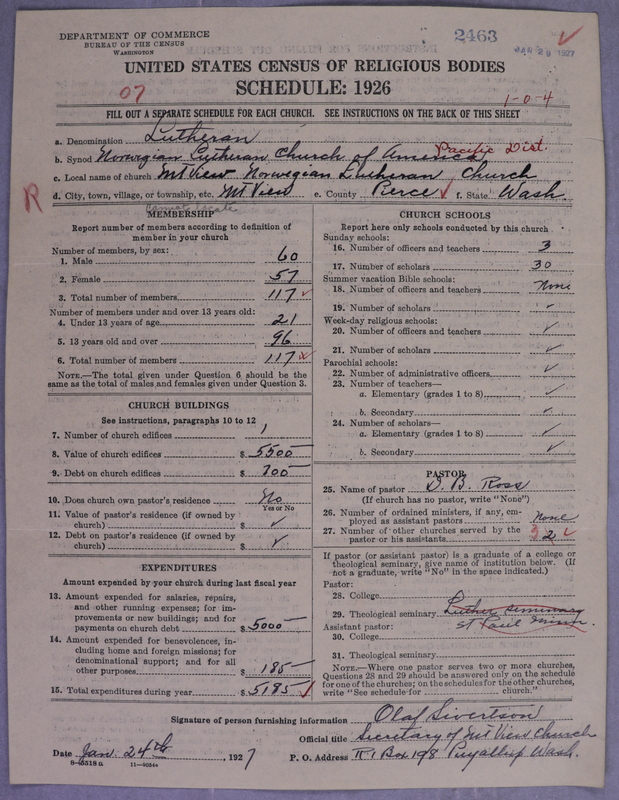 DEPARTMENT OF COMMERCE
BUREAU OF THE CENSUS
WASHINGTON
2463
JAN 28 1927
UNITED STATES CENSUS OF RELIGIOUS BODIES
SCHEDULE: 1926
07
1-0-4
FILL OUT A SEPARATE SCHEDULE FOR EACH CHURCH. SEE INSTRUCTIONS ON THE BACK OF THIS SHEET
a. Denomination Lutheran
b. Synod Norwegian Lutheran Church of America Pacific Dist.
c. Local name of church Mt View Norwegian Lutheran Church
R
d. City, town, village, or township, etc. Mt View e. County Pierce f. State Wash
Cannot locate
MEMBERSHIP
Report number of members according to definition of
member in your church
Number of members, by sex:
1. Male 60
2. Female 57
3. Total number of members 117
Number of members under and over 13 years old:
4. Under 13 years of age 21
5. 13 years old and over 96
6. Total number of members 117
NOTE.—The total given under Question 6 should be the
same as the total of males and females given under Question 3.
CHURCH BUILDINGS
See instructions, paragraphs 10 to 12
7. Number of church edifices 1
8. Value of church edifices $ 5500
9. Debt on church edifices $ 700
10. Does church own pastor's residence No
Yes or No
11. Value of pastor's residence (if owned by
church) $ ✓
12. Debt on pastor's residence (if owned by
church) $ ✓
EXPENDITURES
Amount expended by your church during last fiscal year
13. Amount expended for salaries, repairs,
and other running expenses; for im-
provements or new buildings; and for
payments on church debt $ 5000
14. Amount expended for benevolences, in-
cluding home and foreign missions; for
denominational support; and for all
other purposes $ 185
15. Total expenditures during year $ 5185
CHURCH SCHOOLS
Report here only schools conducted by this church
Sunday schools:
16. Number of officers and teachers 3
17. Number of scholars 30
Summer vacation Bible schools:
18. Number of officers and teachers None
19. Number of scholars ✓
Week-day religious schools:
20. Number of officers and teachers ✓
21. Number of scholars ✓
Parochial schools:
22. Number of administrative officers ✓
23. Number of teachers—
a. Elementary (grades 1 to 8) ✓
b. Secondary ✓
24. Number of scholars—
a. Elementary (grades 1 to 8) ✓
b. Secondary ✓
PASTOR
25. Name of pastor O. B. Ross
(If church has no pastor, write "None")
26. Number of ordained ministers, if any, em-
ployed as assistant pastors None
27. Number of other churches served by the
pastor or his assistants 3 2
If pastor (or assistant pastor) is a graduate of a college or
theological seminary, give name of institution below. (If
not a graduate, write "No" in the space indicated.)
Pastor:
28. College
29. Theological seminary Luther Seminary
Assistant pastor: St Paul Minn.
30. College
31. Theological seminary
NOTE.—Where one pastor serves two or more churches,
Questions 28 and 29 should be answered only on the schedule
for one of the churches; on the schedules for the other churches,
write "See schedule for church."
Signature of person furnishing information Olaf Sivertson
Official title Secretary of Mt View Church
Date Jan. 24th, 1927 P. O. Address Rt 1 Box 198 Puyallup Wash.
8—5518 a 11—9054a